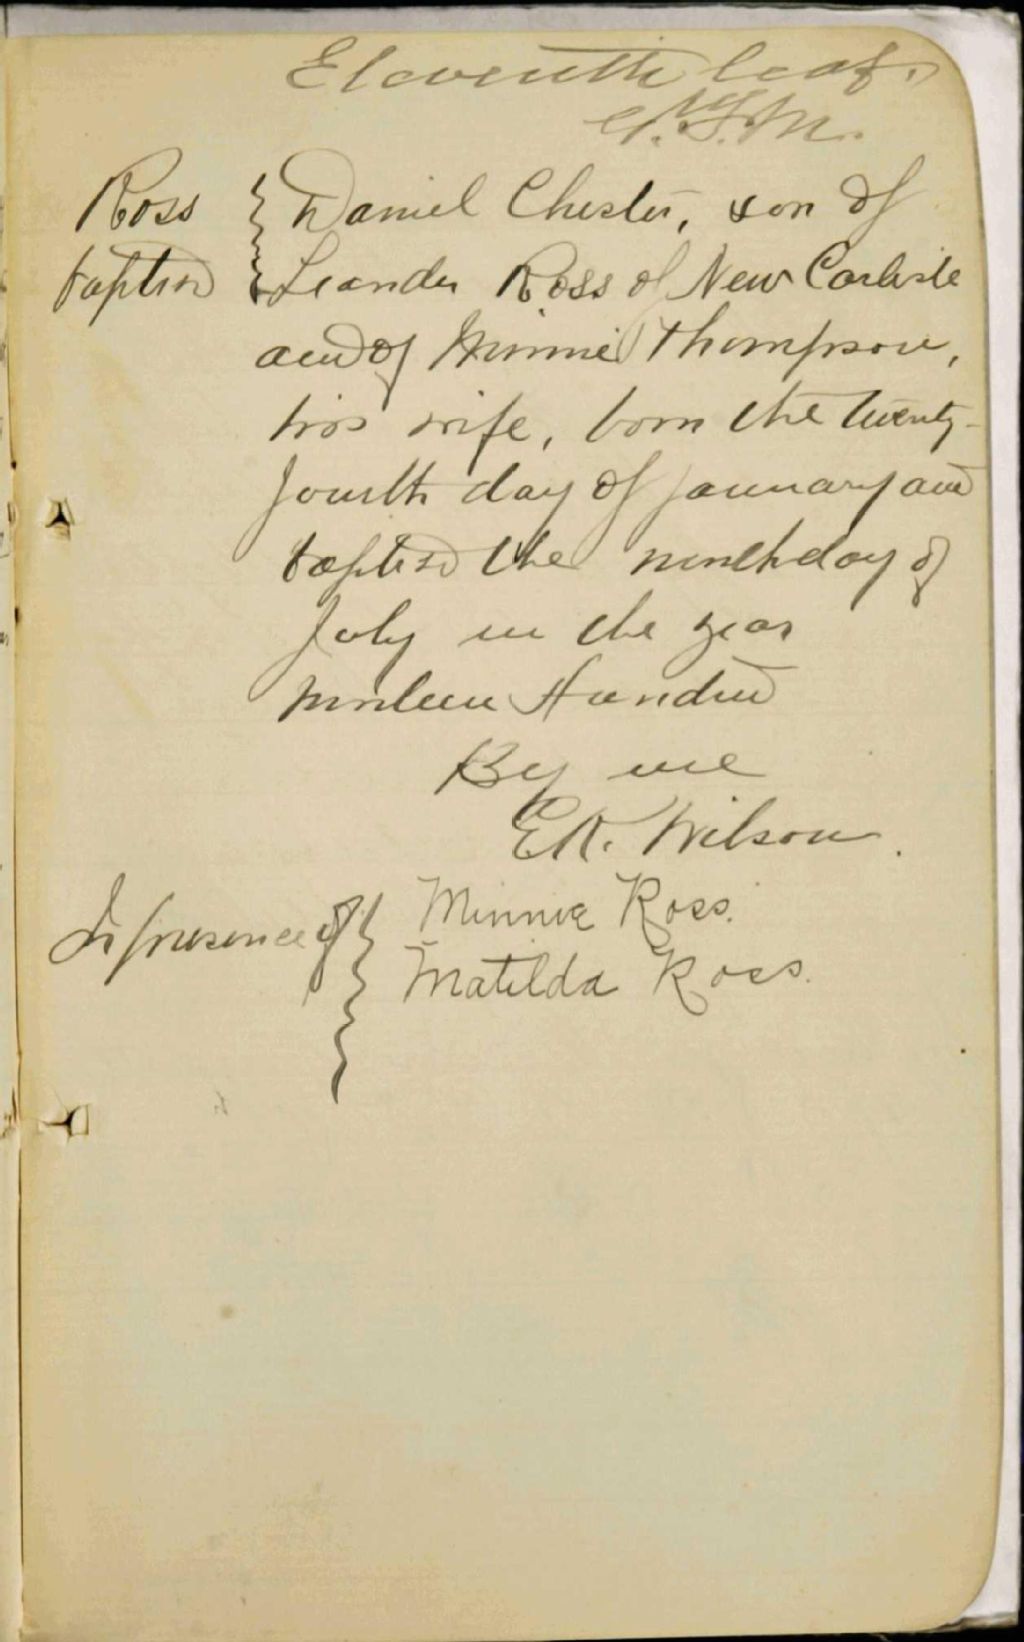 Eleventh leaf.
Ross
baptised
Daniel Chester, son of
Leander Ross of New Carlisle
and of Minnie Thompson,
his wife, born the twenty-
fourth day of January and
baptised the ninth day of
July in the year
nineteen Hundred
By me
E.R. Wilson.
In presence of
Minnie Ross.
Matilda Ross.